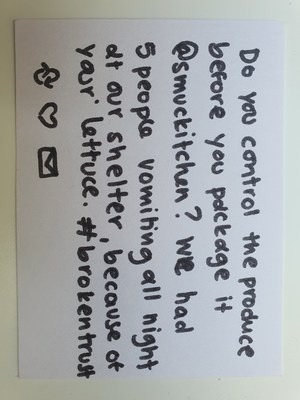 Do you control the produce
before you package it
@smuckitchen? We had
5 people vomiting all night
at our shelter, because of
your lettuce. #brokentrust